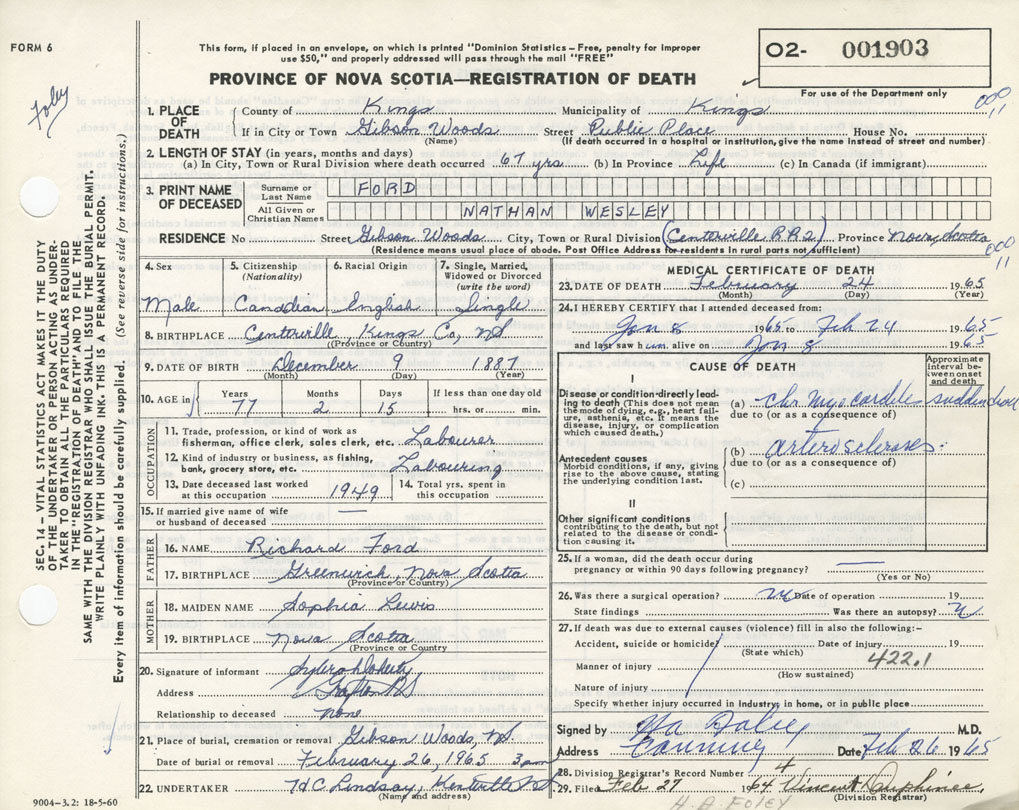 FORM 6
Foley
This form, if placed in an envelope, on which is printed "Dominion Statistics – Free, penalty for improper
use $50," and properly addressed will pass through the mail "FREE"
PROVINCE OF NOVA SCOTIA—REGISTRATION OF DEATH
O2- 001903
For use of the Department only
000
11
1. PLACE OF DEATH County of Kings Municipality of Kings
If in City or Town Gibson Woods Street Public Place House No.
(Name) (If death occurred in a hospital or institution, give the name instead of street and number)
2. LENGTH OF STAY (in years, months and days)
(a) In City, Town or Rural Division where death occurred 67 yrs (b) In Province Life (c) In Canada (if immigrant)
3. PRINT NAME OF DECEASED Surname or Last Name FORD
All Given or Christian Names NATHAN WESLEY
RESIDENCE No Street Gibson Woods City, Town or Rural Division (Centerville R.R.2) Province Nova Scotia
(Residence means usual place of abode. Post Office Address for residents in rural parts not sufficient)
000
11
SEC. 14 – VITAL STATISTICS ACT MAKES IT THE DUTY
OF THE UNDERTAKER OR PERSON ACTING AS UNDER-
TAKER TO OBTAIN ALL THE PARTICULARS REQUIRED
IN THE "REGISTRATION OF DEATH" AND TO FILE THE
SAME WITH THE DIVISION REGISTRAR WHO SHALL ISSUE THE BURIAL PERMIT.
WRITE PLAINLY WITH UNFADING INK. THIS IS A PERMANENT RECORD.
Every item of information should be carefully supplied. (See reverse side for instructions.)
4. Sex 5. Citizenship (Nationality) 6. Racial Origin 7. Single, Married, Widowed or Divorced (write the word)
Male Canadian English Single
8. BIRTHPLACE Centerville Kings Co, NS
(Province or Country)
9. DATE OF BIRTH December 9 1887
(Month) (Day) (Year)
10. AGE in Years Months Days If less than one day old
77 2 15 hrs. or min.
OCCUPATION
11. Trade, profession, or kind of work as
fisherman, office clerk, sales clerk, etc. Labourer
12. Kind of industry or business, as fishing,
bank, grocery store, etc. Labouring
13. Date deceased last worked
at this occupation 1949
14. Total yrs. spent in
this occupation
15. If married give name of wife
or husband of deceased —
FATHER
16. NAME Richard Ford
17. BIRTHPLACE Greenwich, Nova Scotia
(Province or Country)
MOTHER
18. MAIDEN NAME Sophia Lewis
19. BIRTHPLACE Nova Scotia
(Province or Country)
20. Signature of informant
Address Grafton NS
Relationship to deceased none
21. Place of burial, cremation or removal Gibson Woods, N.S.
Date of burial or removal February 26, 1965 3 pm
22. UNDERTAKER H C Lindsay, Kentville NS
(Name and address)
9004-3.2: 18-5-60
MEDICAL CERTIFICATE OF DEATH
23. DATE OF DEATH February 24 1965
(Month) (Day) (Year)
24. I HEREBY CERTIFY that I attended deceased from:
Jan 8 1965 to Feb 24 1965
and last saw him alive on Jan 8 1965
CAUSE OF DEATH
Approximate interval between onset and death
I
Disease or condition directly leading to death (This does not mean the mode of dying, e.g., heart failure, asthenia, etc. It means the disease, injury, or complication which caused death.)
(a) Chr. myocarditis sudden
due to (or as a consequence of)
Antecedent causes
Morbid conditions, if any, giving rise to the above cause, stating the underlying condition last.
(b) arterosclerosis
due to (or as a consequence of)
(c)
II
Other significant conditions
contributing to the death, but not related to the disease or condition causing it.
25. If a woman, did the death occur during
pregnancy or within 90 days following pregnancy? —
(Yes or No)
26. Was there a surgical operation? Date of operation 19
State findings Was there an autopsy?
27. If death was due to external causes (violence) fill in also the following:-
Accident, suicide or homicide? Date of injury 19
(State which)
422.1
Manner of injury
(How sustained)
Nature of injury
Specify whether injury occurred in industry in home, or in public place
Signed by M.D.
Address Canning Date Feb 26 1965
28. Division Registrar's Record Number 4
29. Filed Feb 27 1964 Vincent
(Division Registrar)
H. A. FOLEY